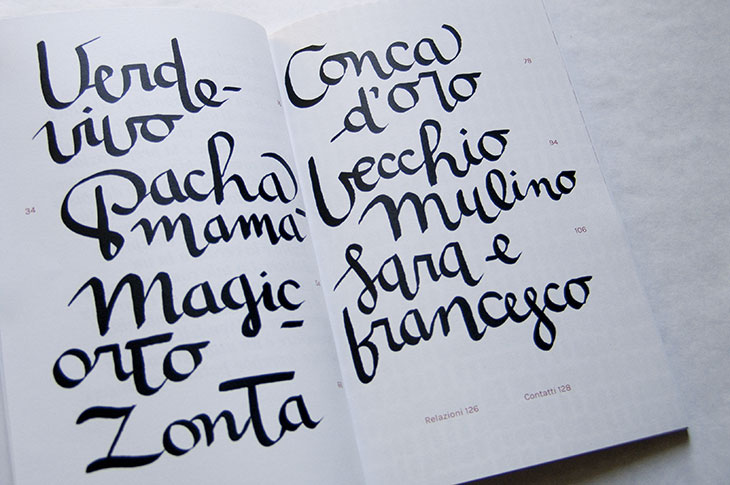 Verde-
vivo
34
Pacha
mama
Magic-
orto
Zonta
Conca
78
d'oro
Vecchio
94
Mulino
106
Sara e
Francesco
Relazioni 126
Contatti 128